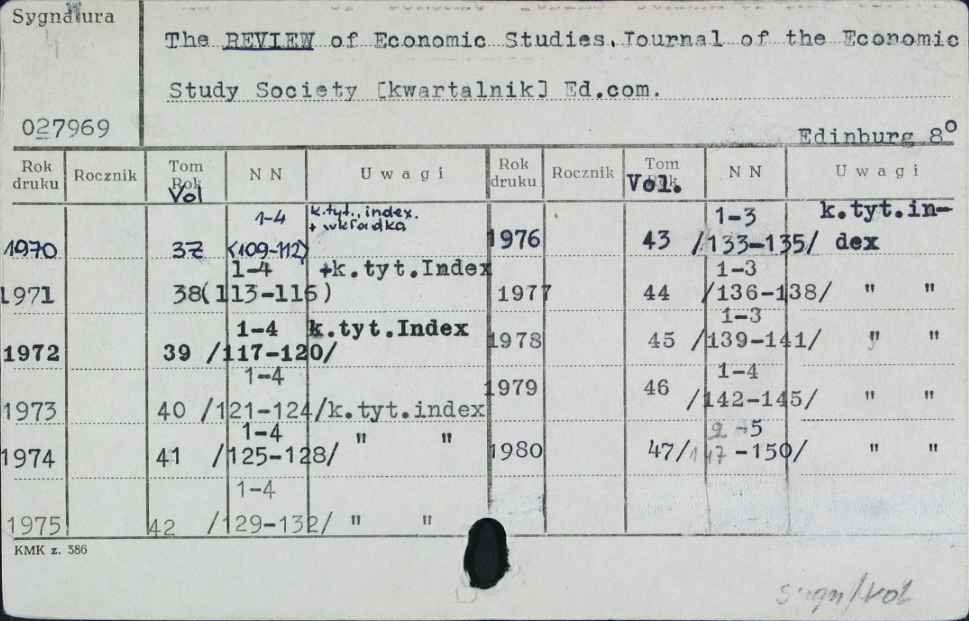 Sygnatura
The REVIEW of Economic Studies.Journal of the Economic
Study Society [kwartalnik] Ed.com.
027969
Edinburg 8°
Rok druku Rocznik Tom Rok Vol N N Uwagi
1970 37 1-4 (109-112) k.tyt., index. + wkładka
1971 38 1-4 (113-116) +k.tyt.Index
1972 39 1-4 /117-120/ k.tyt.Index
1973 40 1-4 /121-124/ k.tyt.index
1974 41 1-4 /125-128/ " "
1975 42 1-4 /129-132/ " "
Rok druku Rocznik Tom Vol. N N Uwagi
1976 43 1-3 /133-135/ k.tyt.in-dex
1977 44 1-3 /136-138/ " "
1978 45 1-3 /139-141/ " "
1979 46 1-4 /142-145/ " "
1980 47 2-5 /147-150/ " "
KMK z. 586